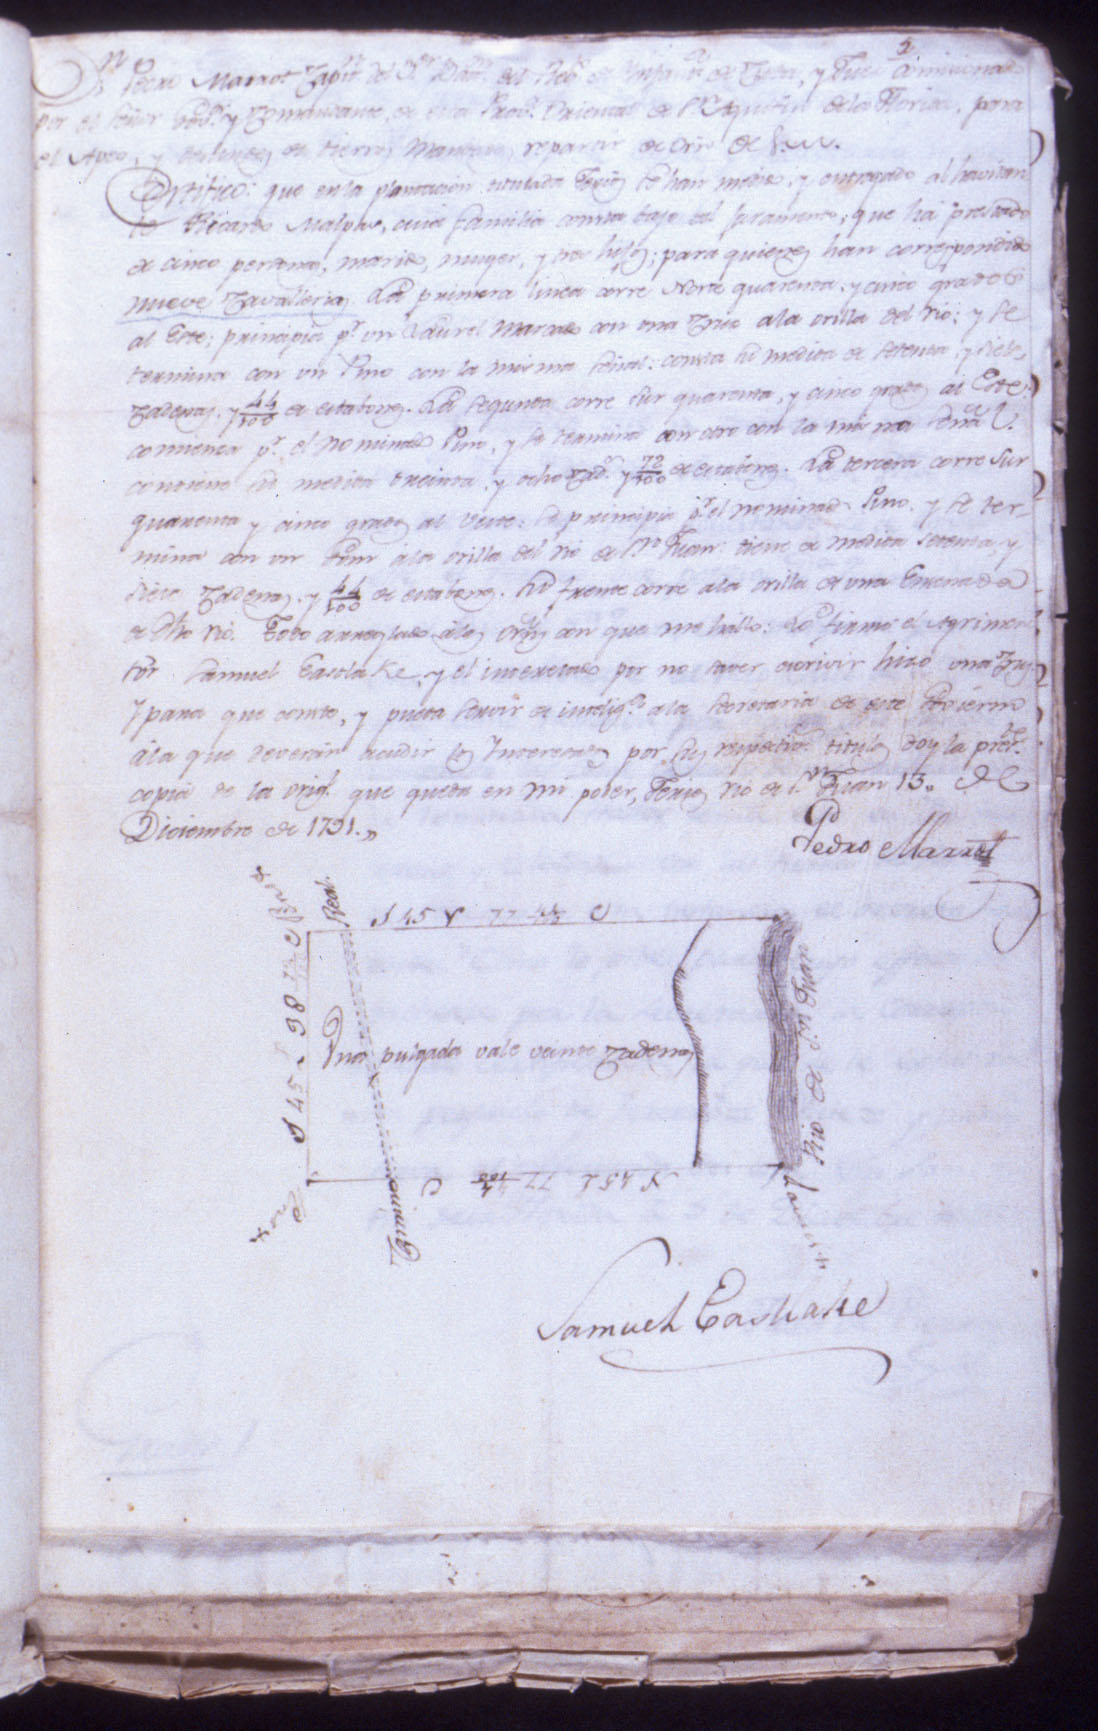 2
Dn. Pedro Marrot Capitn. del 3er. Batn. del Regto. de Infanta. de Cuba, y Juez Comisionado
por el Señor Govr. y Comandante de esta Prova. Oriental de Sn. Agustin de la Florida, para
el Apeo, y deslinde de tierras mandadas repartir de orn. de S. M.
Certifico: que en la plantacion titulada se han medido, y entregado al havitan
te Ricardo Malpas, cuia familia consta bajo del juramento, que há prestado
de cinco personas, marido, muger, y tres hijos; para quienes han correspondido
nueve Cavallerias. La primera linea corre Norte quarenta, y cinco grados
al Este; principia pr. un Laurel marcado con una Cruz ala orilla del rio; y se
termina con un Pino con la misma señal: consta su medida de setenta, y siete
Cadenas, y 44/100 de eslabones. La segunda corre Sur quarenta, y cinco grados al Este:
comienza pr. el nominado Pino, y se termina con otro con la misma señal.
contiene su medida treinta, y ocho Cads. y 72/100 de eslabones. La tercera corre Sur
quarenta y cinco grados al Oeste: se principia pr. el nominado Pino, y se ter-
mina con un ála orilla del rio de Sn. Juan: tiene de medida setenta, y
siete Cadenas, y 44/100 de eslabones. Su frente corre ala orilla de una Ensenada
de dho rio. Todo arreglado álas orns. con que me hallo: Lo firmó el Agrimen
sor Samuel Eastlake, y el interesado por no saver escrivir hizo una Cruz
Y para que conste, y pueda servir de inteliga. ala Secretaria de este Govierno
ála que deverán acudir los Interesados por sus respectivos titulos doy la preste.
copia de la origl. que queda en mi poder, rio de Sn. Juan 13,, de
Diciembre de 1791.,,
Pedro Marrot
Pino x
Real.
S 45 77 44 C
S 45 E 38 72 C
Una pulgada vale veinte Cadenas
Rio de Sn. Juan
N 45 E 77 44/100 C
Camino
Pino x
Laurel x
Samuel Eastlake